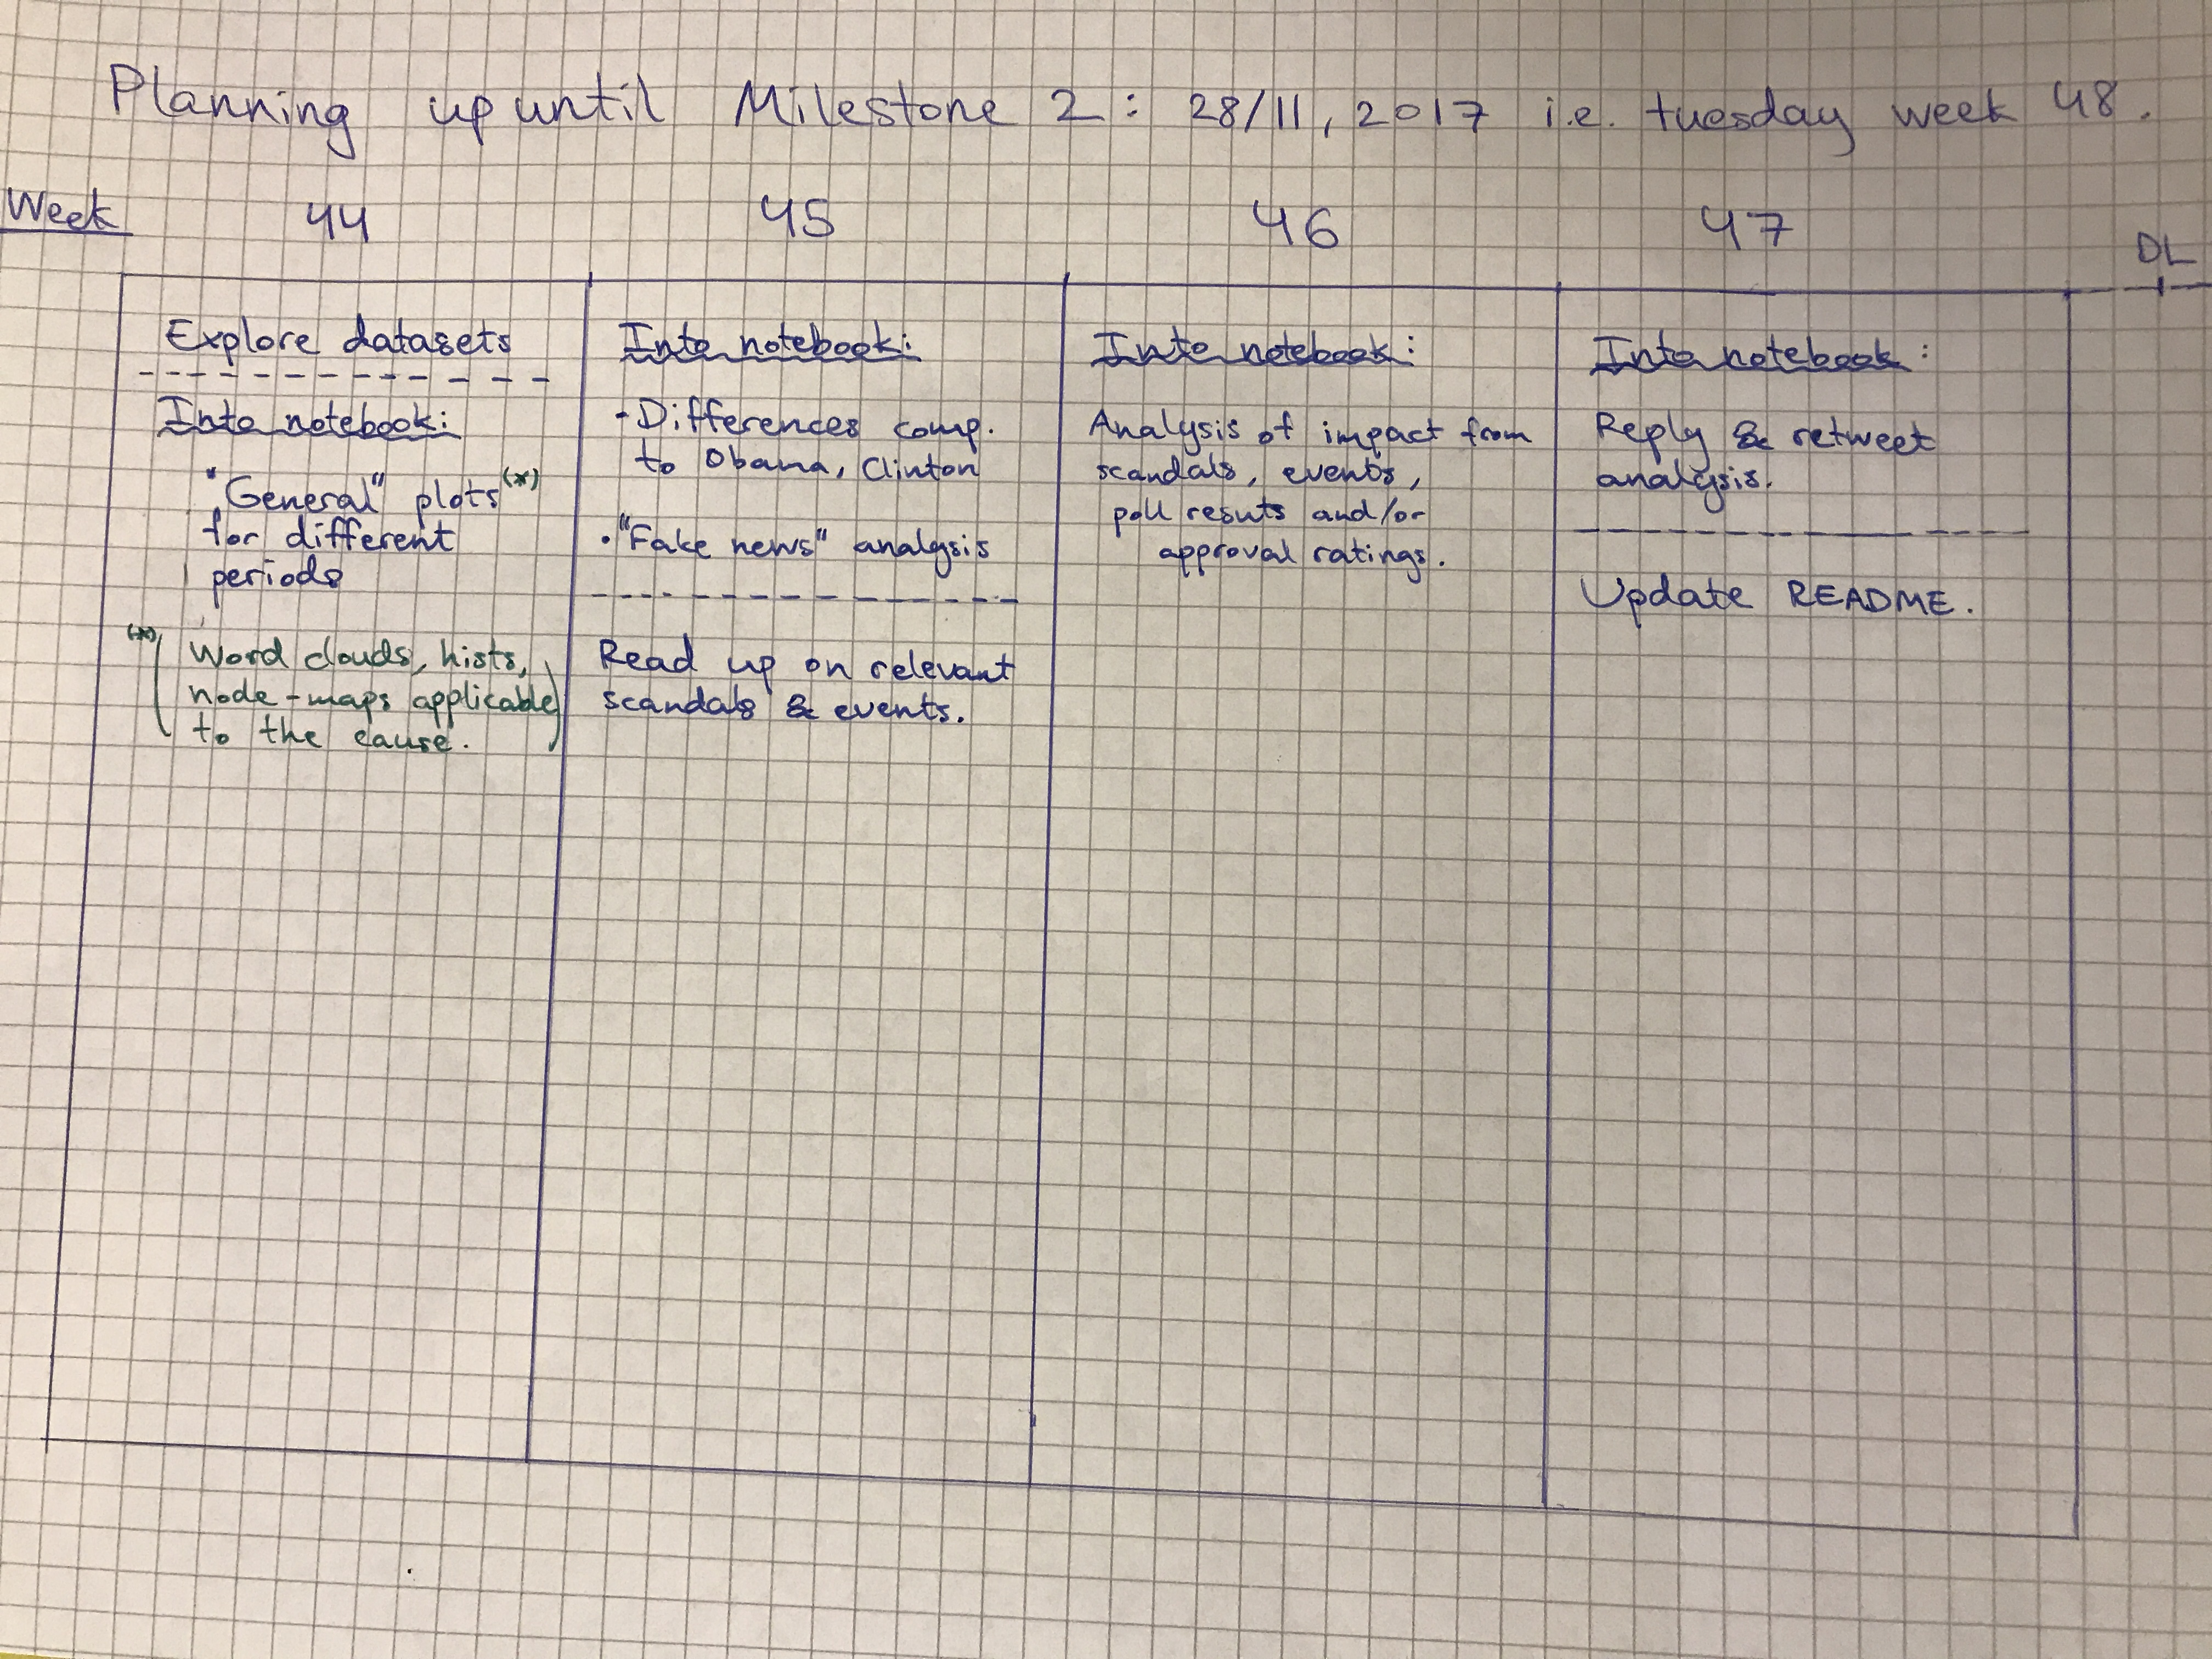 Planning up until Milestone 2: 28/11, 2017 i.e. tuesday week 48.
Week 44 45 46 47
DL
Explore datasets
Into notebook:
"General" plots (*)
for different
periods
(*) (Word clouds, hists,
node-maps applicable
to the cause.)
Into notebook:
- Differences comp.
to Obama, Clinton
• "Fake news" analysis
Read up on relevant
scandals & events.
Into notebook:
Analysis of impact from
scandals, events,
poll resuts and/or
approval ratings.
Into notebook:
Reply & retweet
analysis.
Update README.